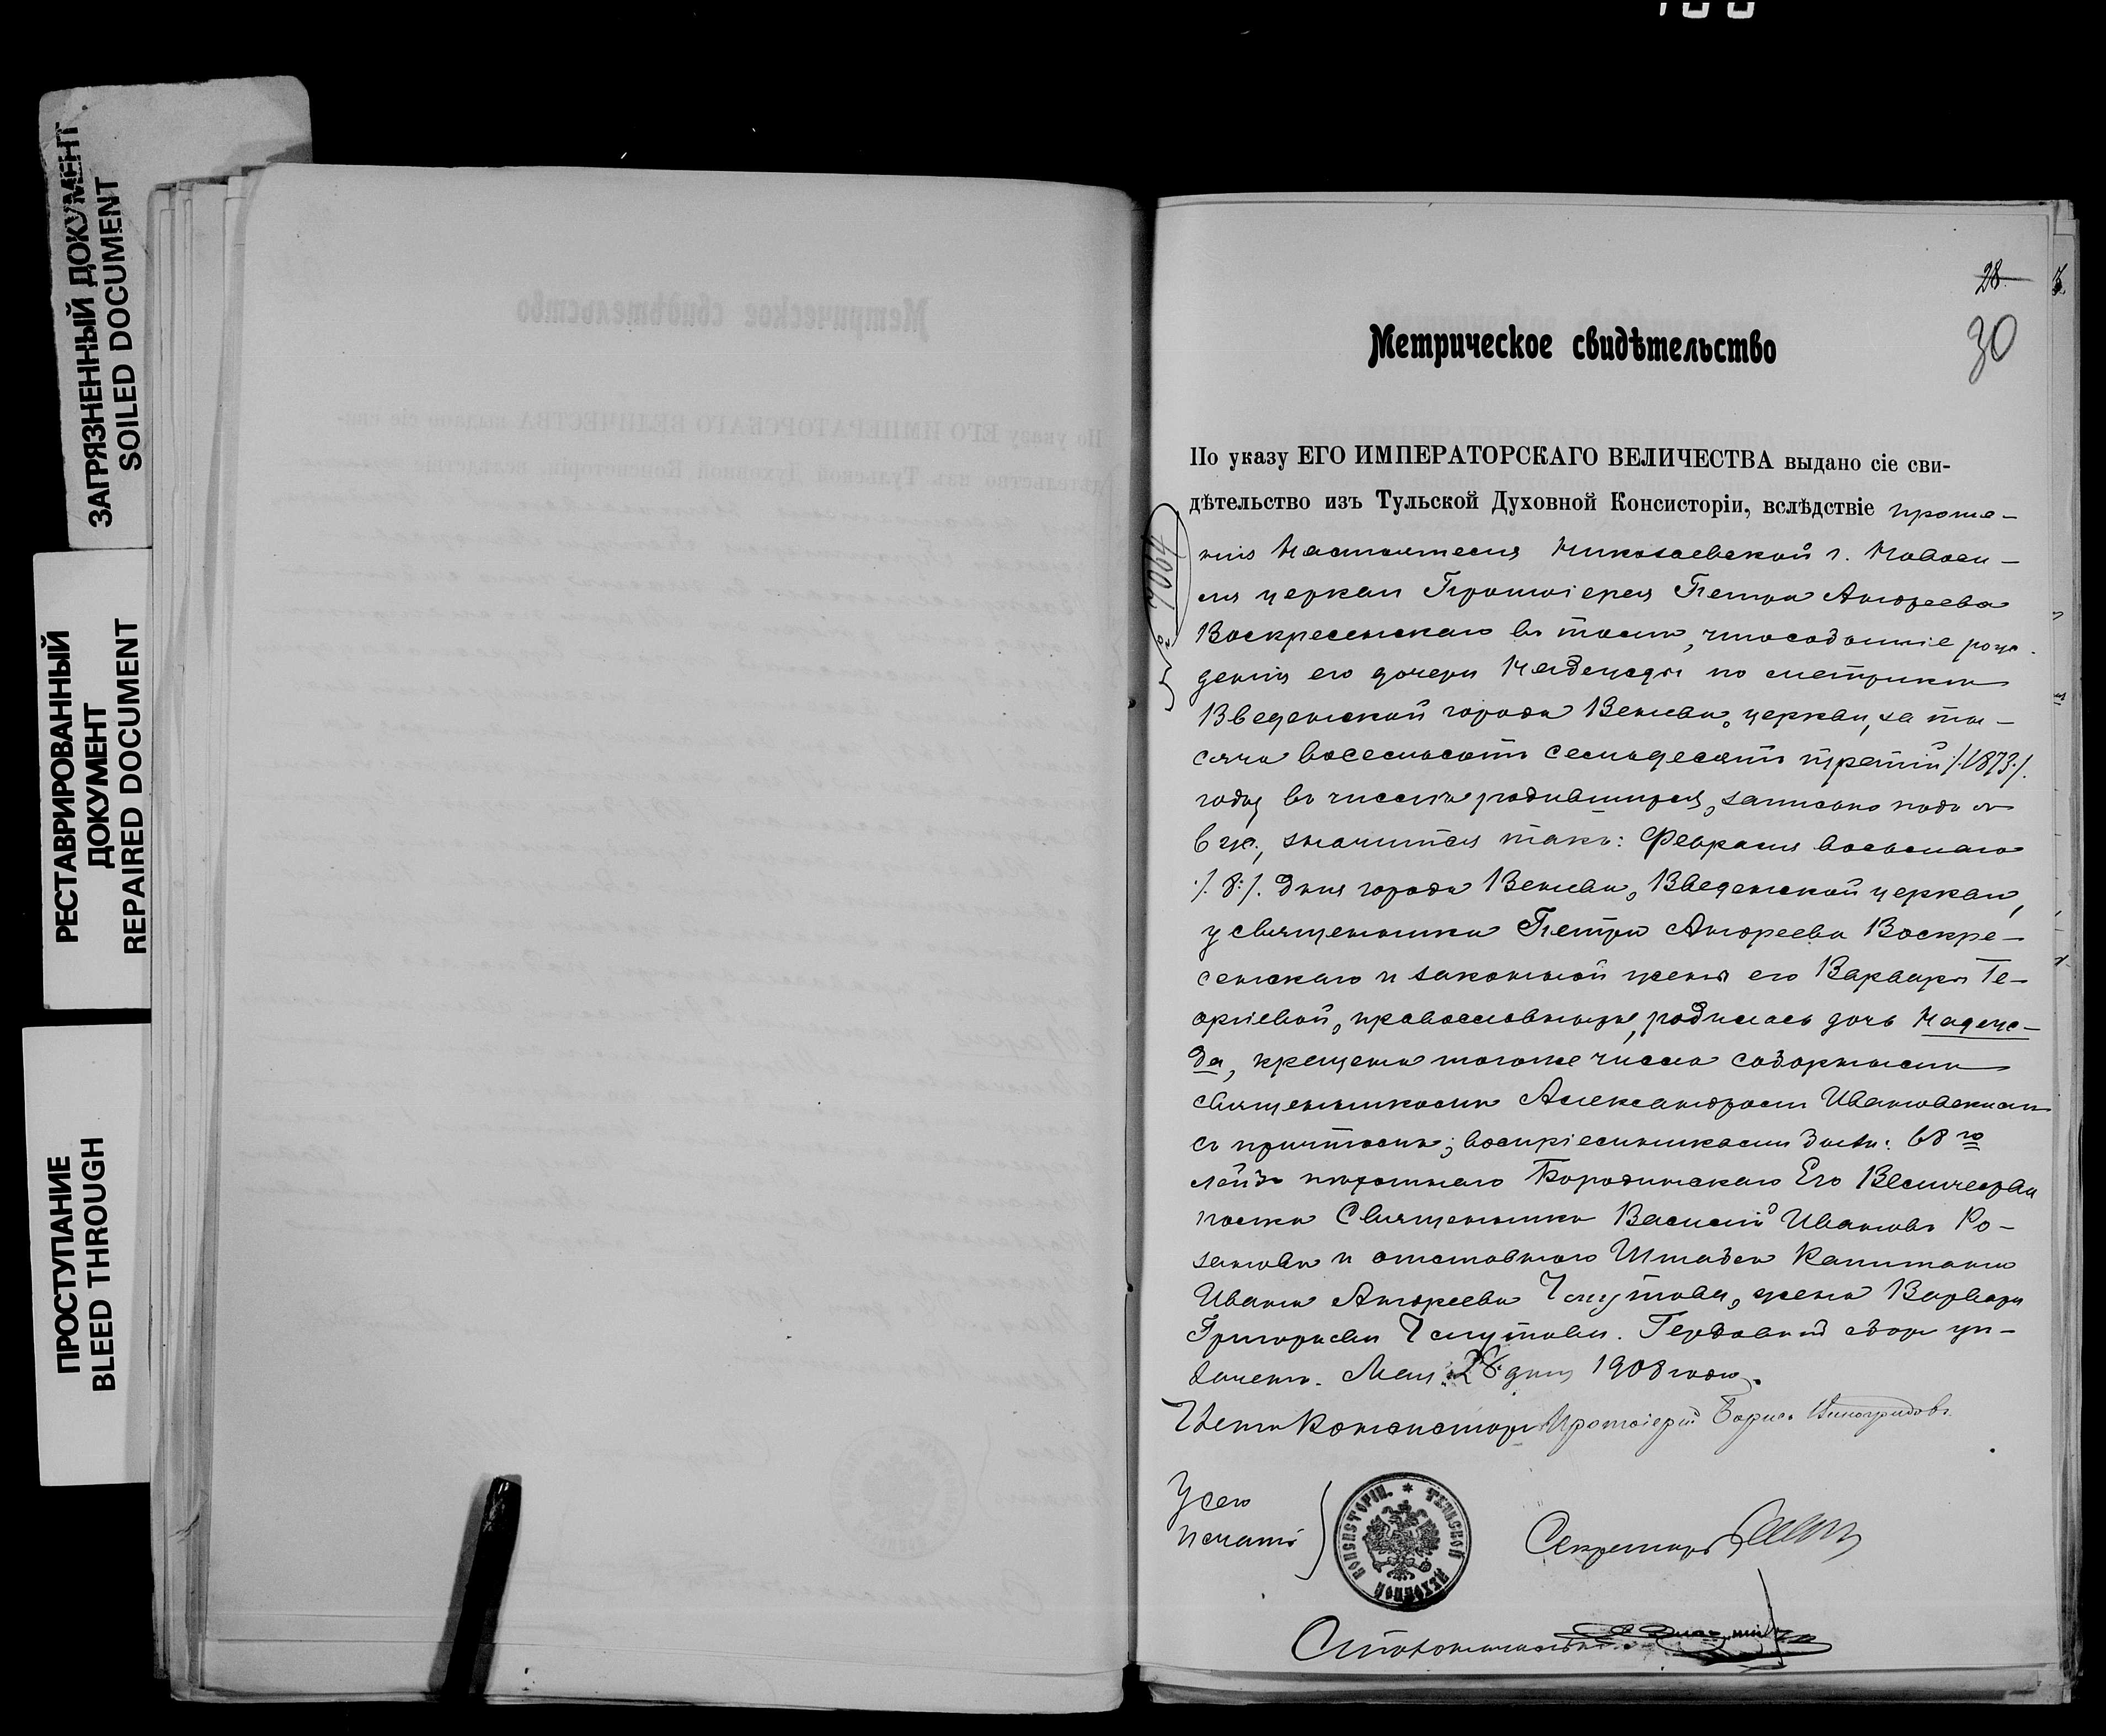 ЗАГРЯЗНЕННЫЙ ДОКУМЕНТ
SOILED DOCUMENT
РЕСТАВРИРОВАННЫЙ
ДОКУМЕНТ
REPAIRED DOCUMENT
ПРОСТУПАНИЕ
BLEED THROUGH
28
30
Метрическое свидѣтельство
По указу ЕГО ИМПЕРАТОРСКАГО ВЕЛИЧЕСТВА выдано сіе сви-
дѣтельство изъ Тульской Духовной Консисторіи, вслѣдствіе проше-
нія Настоятеля Николаевской г. Новоси-
ля церкви Протоіерея Петра Андреева
Воскресенскаго въ томъ, что событіе рож-
денія его дочери Надежды по метрикѣ
Введенской города Венева, церкви, за ты-
сяча восемьсотъ семьдесятъ третій /:1873:/
годъ въ числѣ родившихся, записано подъ №
6 ж., значится такъ: Февраля восьмаго
/:8:/ дня города Венева, Введенской церкви,
у священника Петра Андреева Воскре-
сенскаго и законной жены его Варвары Ге-
оргіевой, православныхъ, родилась дочь Надеж-
да, крещена того же числа соборнымъ
священникомъ Александромъ Ивановскимъ
съ причтомъ; воспріемниками были: 68 го
лейбъ пѣхотнаго Бородинскаго Его Величества
полка Священникъ Василій Ивановъ Ро-
зановъ и отставного Штабсъ Капитана
Ивана Андреева жена Варвара
Григорьева Гербовый сборъ уп-
лаченъ. Мая 28 дня 1908 года.
Членъ Консисторіи Протоіерей Борисъ Виноградовъ
У сего
печать
ТУЛЬСКОЙ ДУХОВНОЙ КОНСИСТОРІИ.
Секретарь
Столоначальникъ